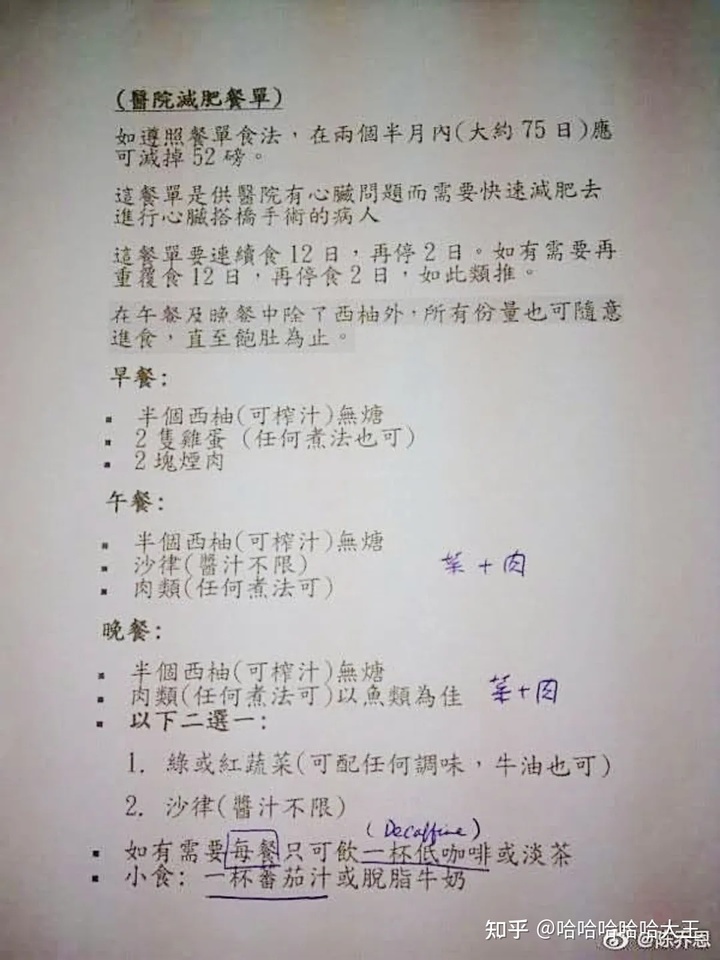 (醫院減肥餐單)
如遵照餐單食法，在兩個半月內(大約 75 日)應
可減掉 52 磅。
這餐單是供醫院有心臟問題而需要快速減肥去
進行心臟搭橋手術的病人
這餐單要連續食 12 日，再停 2 日。如有需要再
重覆食 12 日，再停食 2 日，如此類推。
在午餐及晚餐中除了西柚外，所有份量也可隨意
進食，直至飽肚為止。
早餐:
▪ 半個西柚(可榨汁)無煻
▪ 2 隻雞蛋 (任何煮法也可)
▪ 2 塊煙肉
午餐:
▪ 半個西柚(可榨汁)無煻
▪ 沙律(醬汁不限)
菜 + 肉
▪ 肉類(任何煮法可)
晚餐:
▪ 半個西柚(可榨汁)無煻
▪ 肉類(任何煮法可)以魚類為佳
菜+肉
▪ 以下二選一:
1. 綠或紅蔬菜(可配任何調味，牛油也可)
2. 沙律(醬汁不限)
(Decaffine)
▪ 如有需要每餐只可飲一杯低咖啡或淡茶
▪ 小食: 一杯番茄汁或脫脂牛奶
知乎 @哈哈哈哈哈大王
@陈乔恩